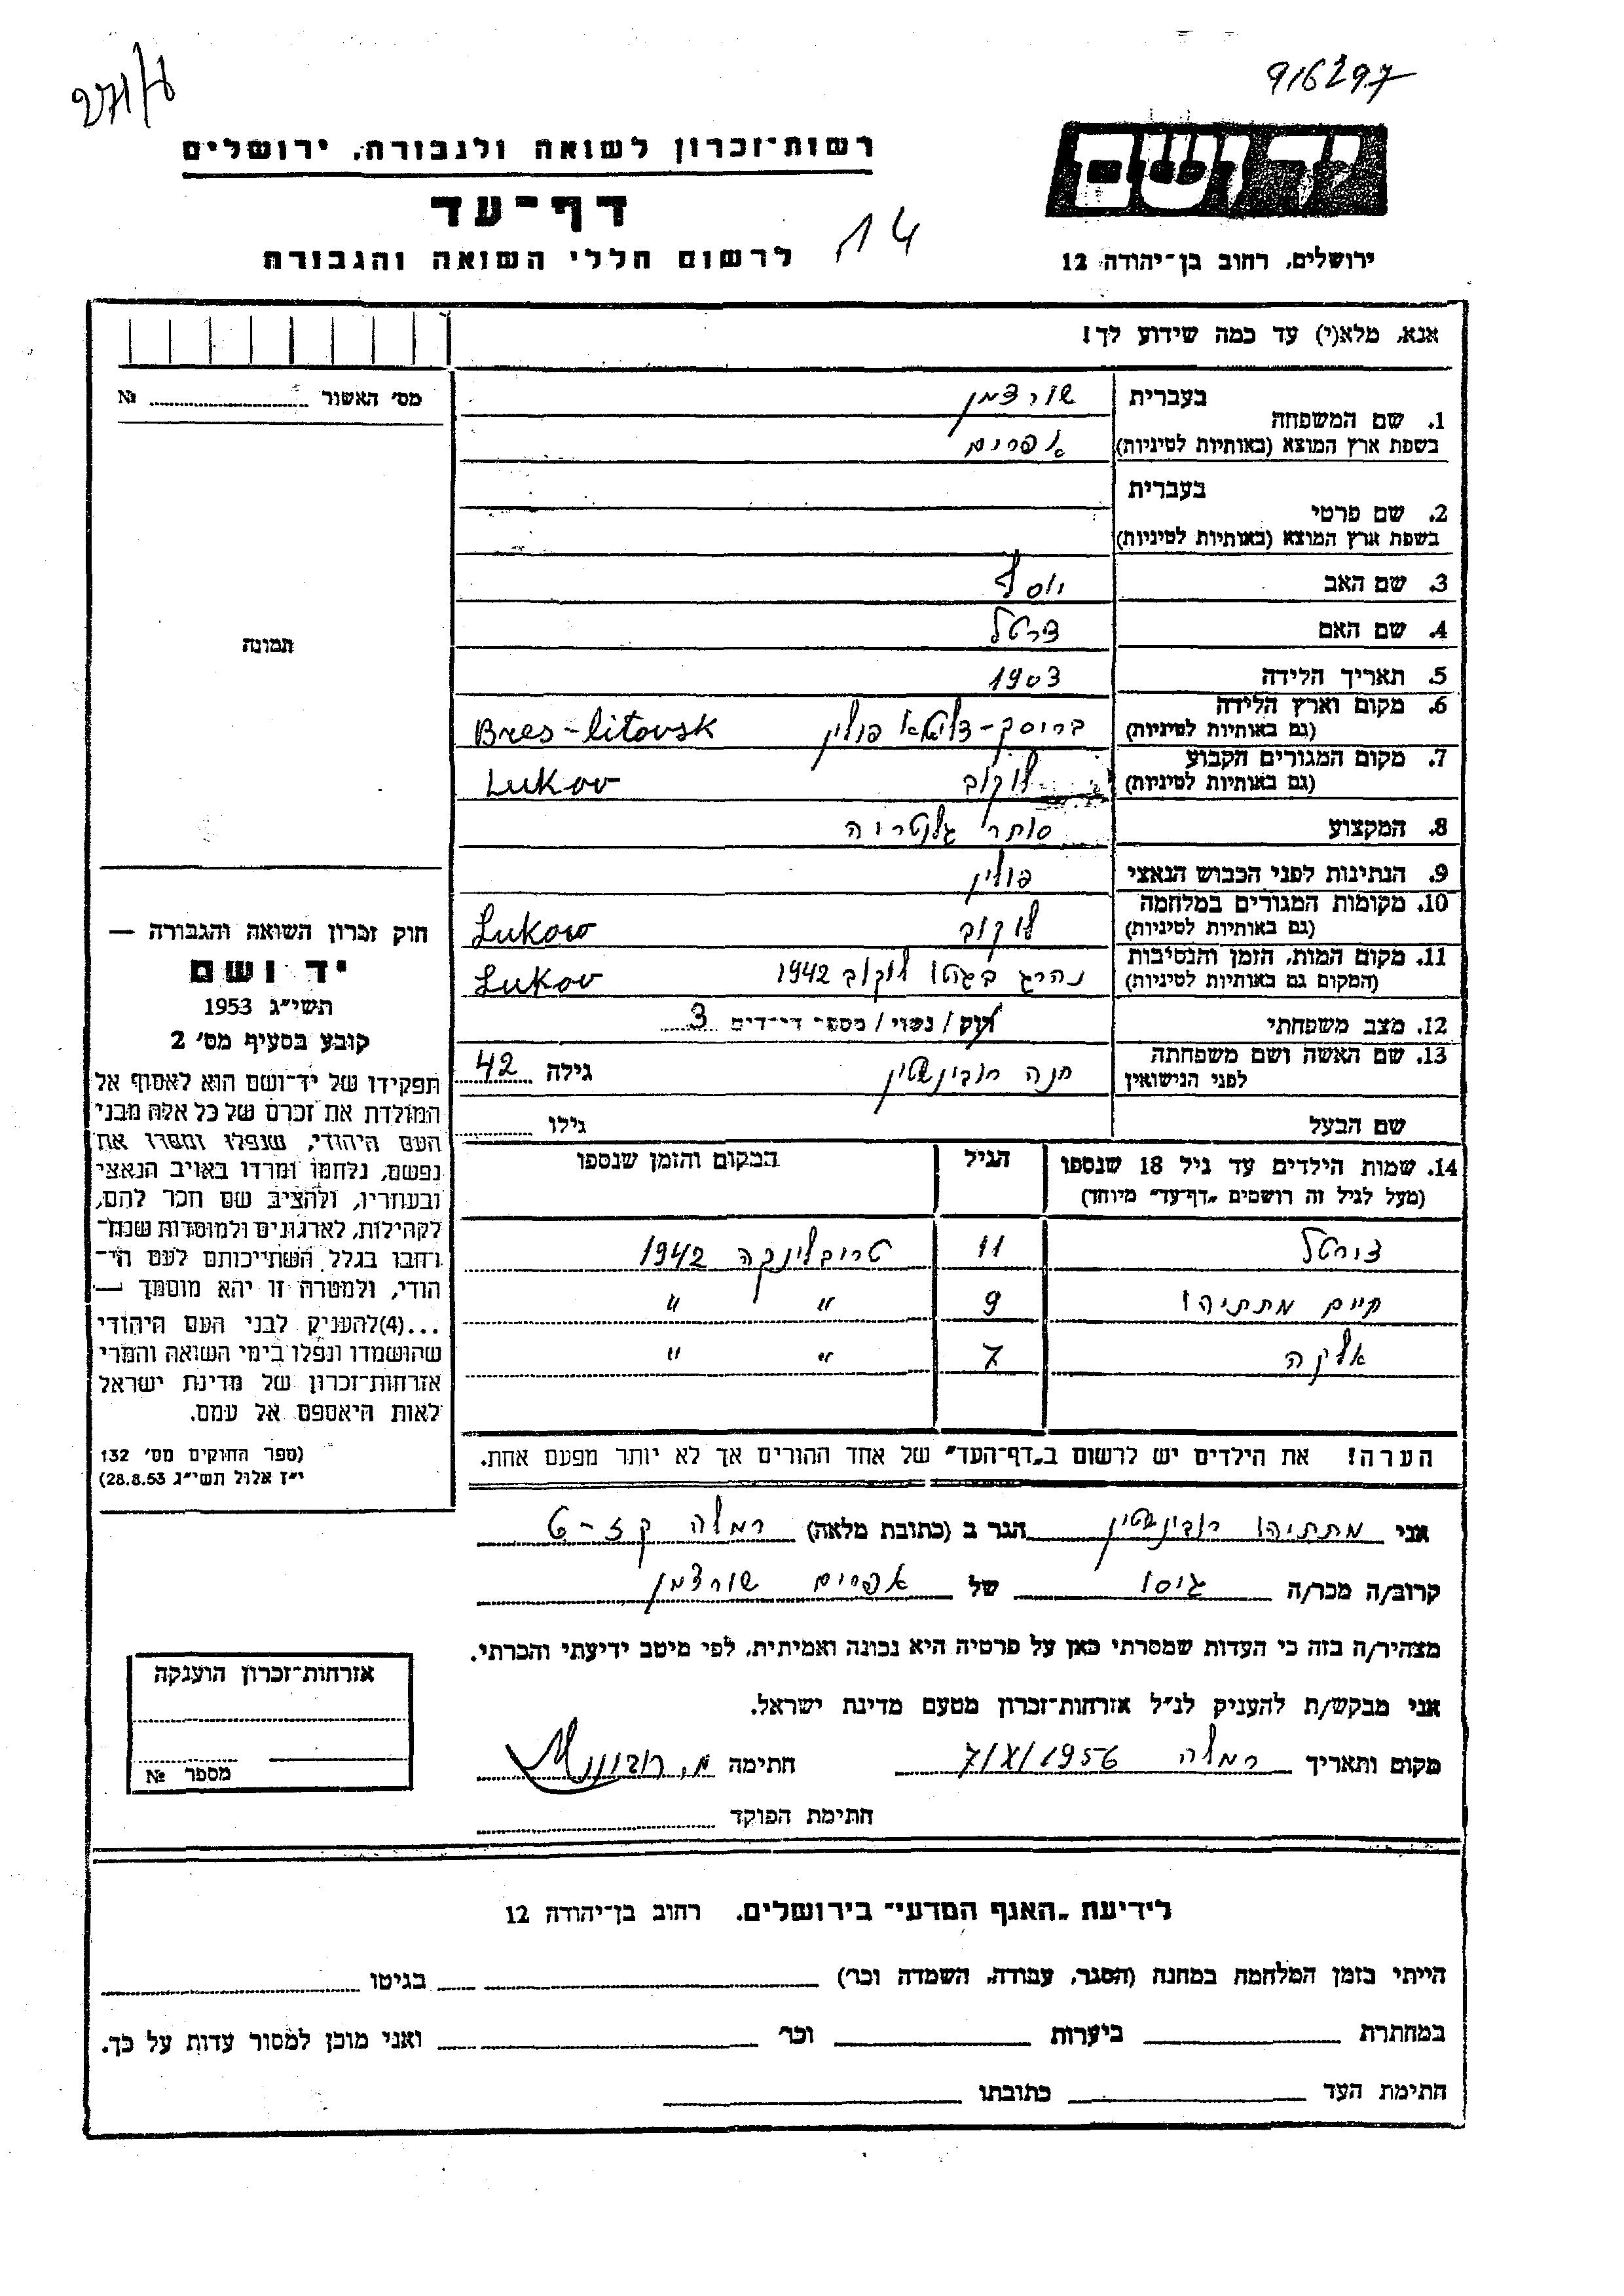 916297
271/8
יד ושם
רשות-זכרון לשואה ולגבורה, ירושלים
דף-עד
14
לרשום חללי השואה והגבורה
ירושלים, רחוב בן-יהודה 12
אנא, מלא(י) עד כמה שידוע לך!
מס' האשור № 
1. שם המשפחה בעברית שורצמן
בשפת ארץ המוצא (באותיות לטיניות) אפרים
2. שם פרטי בעברית
בשפת ארץ המוצא (באותיות לטיניות)
3. שם האב יוסף
4. שם האם
תמונה
5. תאריך הלידה 1903
6. מקום וארץ הלידה (גם באותיות לטיניות) בריסק-דליטא פולין Bres-litovsk
7. מקום המגורים הקבוע (גם באותיות לטיניות) לוקוב Lukov
8. המקצוע סוחר גלנטריה
9. הנתינות לפני הכבוש הנאצי פולין
10. מקומות המגורים במלחמה (גם באותיות לטיניות) לוקוב Lukow
11. מקום המות, הזמן והנסיבות (המקום גם באותיות לטיניות) נהרג בגטו לוקוב 1942 Lukov
12. מצב משפחתי רוק / נשוי / מספר הילדים 3
13. שם האשה ושם משפחתה לפני הנישואין חנה רובינשטין גילה 42
שם הבעל גילו
14. שמות הילדים עד גיל 18 שנספו הגיל המקום והזמן שנספו
(מעל לגיל זה רושמים "דף-עד" מיוחד)
11 טריבלינקה 1942
חיים מתתיהו 9 " "
אלקה 7 " "
הערה! את הילדים יש לרשום ב"דף-העד" של אחד ההורים אך לא יותר מפעם אחת.
חוק זכרון השואה והגבורה —
יד ושם
תשי"ג 1953
קובע בסעיף מס' 2
תפקידו של יד-ושם הוא לאסוף אל
המולדת את זכרם של כל אלה מבני
העם היהודי, שנפלו ומסרו את
נפשם, נלחמו ומרדו באויב הנאצי
ובעוזריו, ולהציב שם וזכר להם,
לקהילות, לארגונים ולמוסדות שנח-
רבו בגלל השתייכותם לעם הי-
הודי, ולמטרה זו יהא מוסמך —
...(4)להעניק לבני העם היהודי
שהושמדו ונפלו בימי השואה והמרי
אזרחות-זכרון של מדינת ישראל
לאות היאספם אל עמם.
(ספר החוקים מס' 132
י"ז אלול תשי"ג 28.8.53)
אני מתתיהו רובינשטין הגר ב (כתובת מלאה) רמלה
קרוב/ה מכר/ה גיסו של אפרים שורצמן
מצהיר/ה בזה כי העדות שמסרתי כאן על פרטיה היא נכונה ואמיתית, לפי מיטב ידיעתי והכרתי.
אני מבקש/ת להעניק לנ"ל אזרחות-זכרון מטעם מדינת ישראל.
מקום ותאריך רמלה 7/X/1956 חתימה
חתימת הפוקד
אזרחות-זכרון הוענקה
מספר №
לידיעת "האגף המדעי" בירושלים. רחוב בן-יהודה 12
הייתי בזמן המלחמה במחנה (הסגר, עבודה, השמדה וכו') בגיטו
במחתרת ביערות וכו' ואני מוכן למסור עדות על כך.
חתימת העד כתובתו